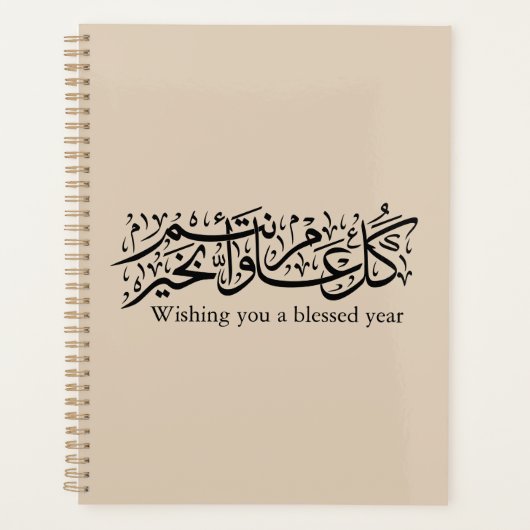 كُل عَام وَأَنتُم بخَير
Wishing you a blessed year